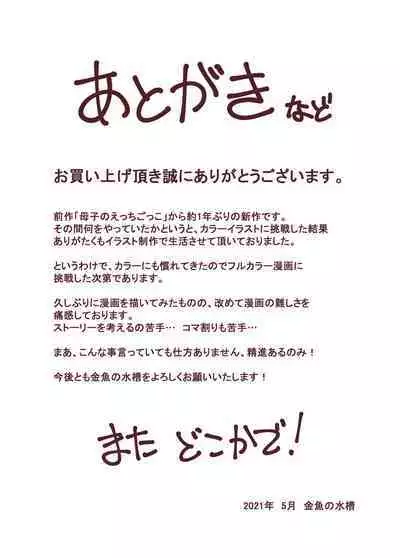 あとがき など
お買い上げ頂き誠にありがとうございます。
前作「母子のえっちごっこ」から約1年ぶりの新作です。
その間何をやっていたかというと、カラーイラストに挑戦した結果
ありがたくもイラスト制作で生活させて頂いておりました。
というわけで、カラーにも慣れてきたのでフルカラー漫画に
挑戦した次第であります。
久しぶりに漫画を描いてみたものの、改めて漫画の難しさを
痛感しております。
ストーリーを考えるの苦手… コマ割りも苦手…
まあ、こんな事言っていても仕方ありません、精進あるのみ！
今後とも金魚の水槽をよろしくお願いいたします！
また どこかで！
2021年 5月 金魚の水槽